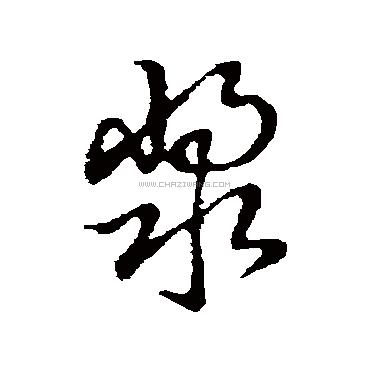 漿
WWW.CHAZIWANG.COM